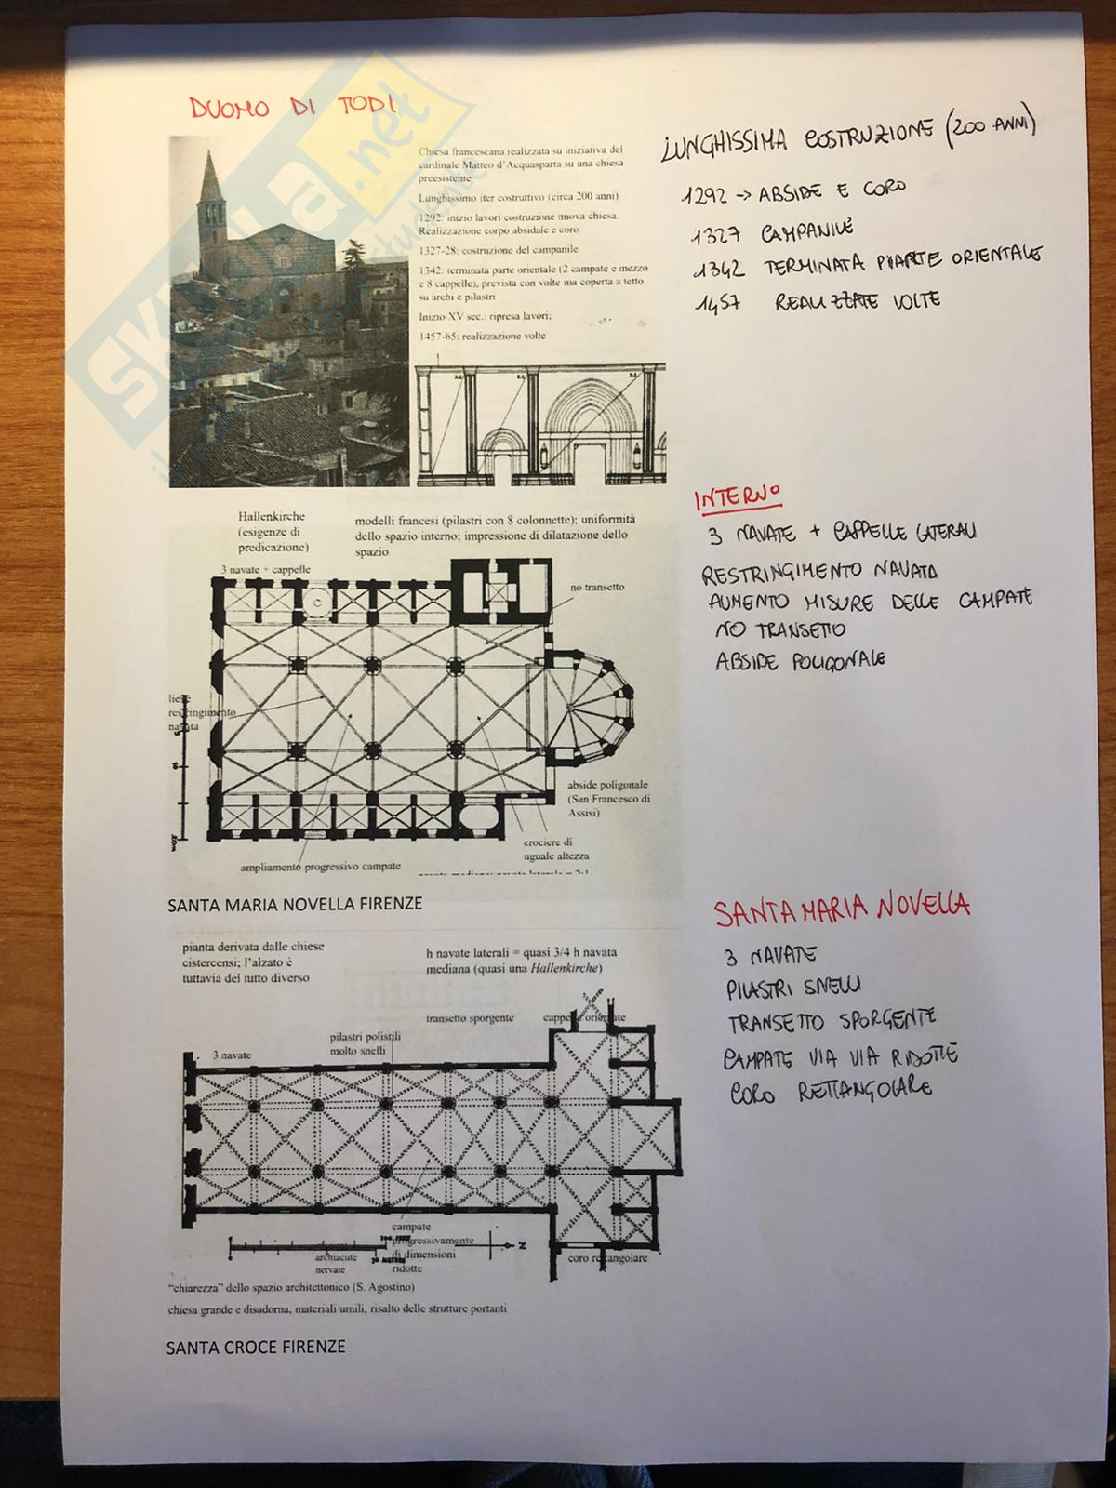 DUOMO DI TODI
Chiesa francescana realizzata su iniziativa del
cardinale Matteo d'Acquasparta su una chiesa
preesistente
Lunghissimo iter costruttivo (circa 200 anni)
1292: inizio lavori costruzione nuova chiesa.
Realizzazione corpo absidale e coro
1327-28: costruzione del campanile
1342: terminata parte orientale (2 campate e mezzo
e 8 cappelle), prevista con volte ma coperta a tetto
su archi e pilastri
Inizio XV sec.: ripresa lavori;
1457-65: realizzazione volte
LUNGHISSIMA COSTRUZIONE (200 ANNI)
1292 -> ABSIDE E CORO
1327 CAMPANILE
1342 TERMINATA PARTE ORIENTALE
1457 REALIZZATE VOLTE
Hallenkirche
(esigenze di
predicazione)
modelli francesi (pilastri con 8 colonnette); uniformità
dello spazio interno; impressione di dilatazione dello
spazio
3 navate + cappelle
no transetto
lieve
restringimento
navata
abside poligonale
(San Francesco di
Assisi)
crociere di
uguale altezza
ampliamento progressivo campate
INTERNO
3 NAVATE + CAPPELLE LATERALI
RESTRINGIMENTO NAVATA
AUMENTO MISURE DELLE CAMPATE
NO TRANSETTO
ABSIDE POLIGONALE
SANTA MARIA NOVELLA FIRENZE
pianta derivata dalle chiese
cistercensi; l'alzato è
tuttavia del tutto diverso
h navate laterali = quasi 3/4 h navata
mediana (quasi una Hallenkirche)
transetto sporgente
cappelle orientate
pilastri polistili
molto snelli
3 navate
campate
progressivamente
di dimensioni
ridotte
archiacute
nervate
N
coro rettangolare
"chiarezza" dello spazio architettonico (S. Agostino)
chiesa grande e disadorna, materiali umili, risalto delle strutture portanti
SANTA MARIA NOVELLA
3 NAVATE
PILASTRI SNELLI
TRANSETTO SPORGENTE
CAMPATE VIA VIA RIDOTTE
CORO RETTANGOLARE
SANTA CROCE FIRENZE